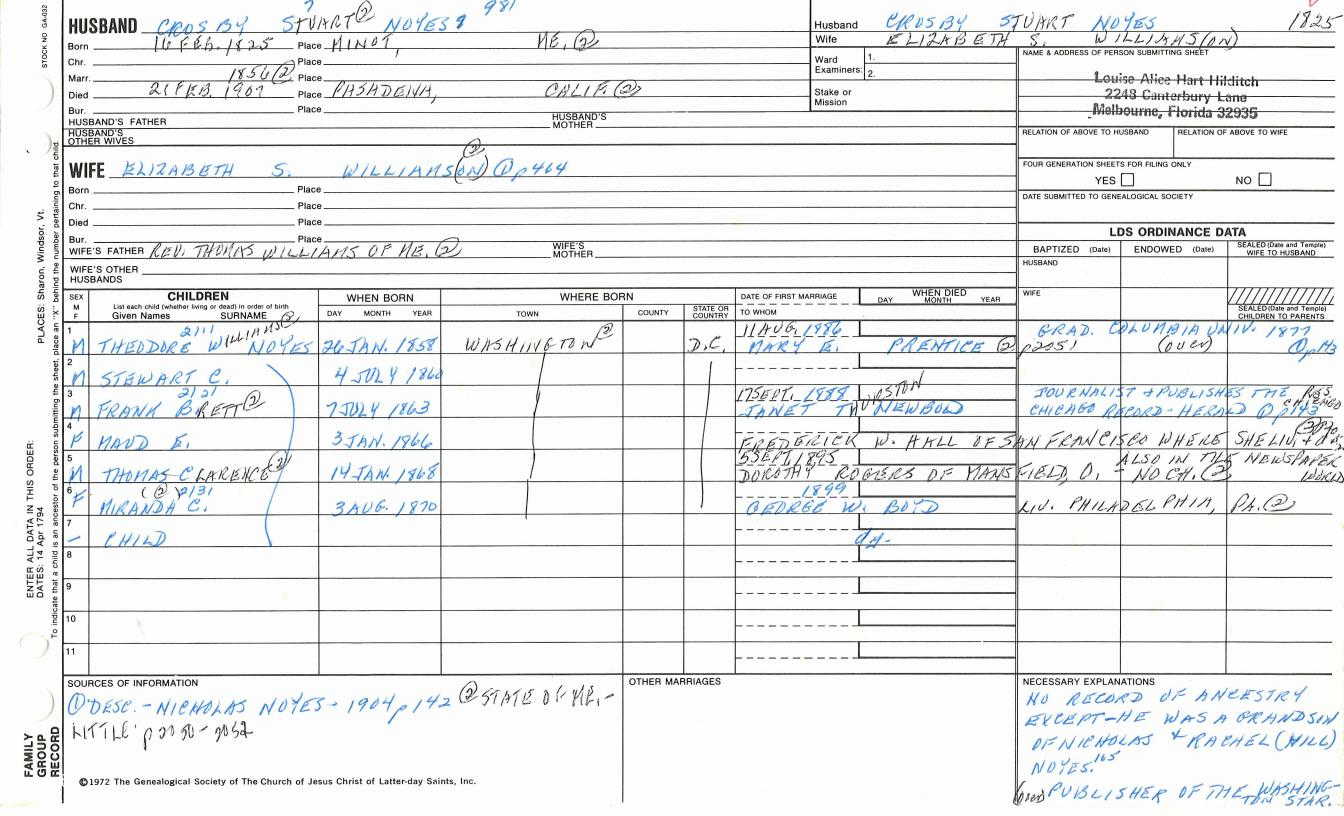 STOCK NO GA-032
HUSBAND CROSBY STUART ② NOYES 981
Born 16 FEB. 1825 Place MINOT, ME. ②
Chr. Place
Marr. 1856 ② Place
Died 21 FEB. 1907 Place PASADENA, CALIF. ②
Bur. Place
HUSBAND'S FATHER HUSBAND'S MOTHER
HUSBAND'S OTHER WIVES
Husband CROSBY STUART NOYES 1825
Wife ELIZABETH S. WILLIAMS(ON)
Ward Examiners: 1. 2.
Stake or Mission
NAME & ADDRESS OF PERSON SUBMITTING SHEET
Louise Alice Hart Hilditch
2248 Canterbury Lane
Melbourne, Florida 32935
RELATION OF ABOVE TO HUSBAND RELATION OF ABOVE TO WIFE
FOUR GENERATION SHEETS FOR FILING ONLY
YES NO
DATE SUBMITTED TO GENEALOGICAL SOCIETY
WIFE ELIZABETH S. WILLIAMS(ON) ② ① p464
Born Place
Chr. Place
Died Place
Bur. Place
WIFE'S FATHER REV. THOMAS WILLIAMS OF ME. ② WIFE'S MOTHER
WIFE'S OTHER HUSBANDS
LDS ORDINANCE DATA
BAPTIZED (Date) ENDOWED (Date) SEALED (Date and Temple) WIFE TO HUSBAND
HUSBAND
WIFE
SEALED (Date and Temple) CHILDREN TO PARENTS
SEX M F
CHILDREN
List each child (whether living or dead) in order of birth
Given Names SURNAME
WHEN BORN
DAY MONTH YEAR
WHERE BORN
TOWN COUNTY STATE OR COUNTRY
DATE OF FIRST MARRIAGE
TO WHOM
WHEN DIED
DAY MONTH YEAR
1 2111 WILLIAMS ② 11 AUG. 1886 GRAD. COLUMBIA UNIV. 1877
M THEODORE W NOYES 26 JAN. 1858 WASHINGTON ② D.C. MARY E. PRENTICE ② p2051 (over)
2
M STEWART C. 4 JULY 1860
3 2121 17 SEPT. 1888 JOURNALIST + PUBLISHES THE
M FRANK BRETT ② 7 JULY 1863 JANET THURSTON NEWBOLD CHICAGO RECORD-HERALD ① p143
4
F MAUD E. 3 JAN. 1866 FREDERICK W. HALL OF SAN FRANCISCO WHERE SHE LIV.
5 5 SEPT. 1895 ALSO IN THE NEWSPAPER WORLD
M THOMAS CLARENCE ② 14 JAN. 1868 DOROTHY ROGERS OF MANSFIELD, O. NO CH. ②
6 (② p131 1899
F MIRANDA C. 3 AUG. 1870 GEORGE W. BOYD LIV. PHILADELPHIA, PA. ②
7
- CHILD
8
9
10
11
SOURCES OF INFORMATION
① DESC. - NICHOLAS NOYES - 1904 p 142 ② STATE OF ME. -
LITTLE p 2050-2052
©1972 The Genealogical Society of The Church of Jesus Christ of Latter-day Saints, Inc.
OTHER MARRIAGES
NECESSARY EXPLANATIONS
NO RECORD OF ANCESTRY
EXCEPT-HE WAS A GRANDSON
OF NICHOLAS + RACHEL (HILL)
NOYES. 165
(over) PUBLISHER OF THE WASHING-
TON STAR.
PLACES: Sharon, Windsor, Vt.
ENTER ALL DATA IN THIS ORDER:
DATES: 14 Apr 1794
To indicate that a child is an ancestor of the person submitting the sheet, place an "X" behind the number pertaining to that child.
FAMILY
GROUP
RECORD